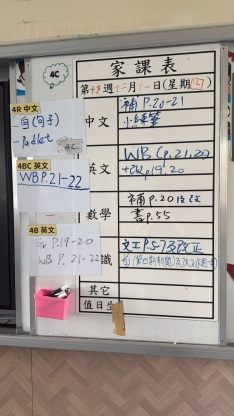 4C
家課表
第十3週十二月一日(星期四)
4R 中文
-自(句子)
-Padlet
4C
中文
補 P.20-21
小練筆
4BC 英文
WB P.21-22
英文
WB (p.21,22)
p.19.20
數學
補 p.20及改
書p.55
4B 英文
P.19-20
WB P.21-22
識
及改正
其它
值日生